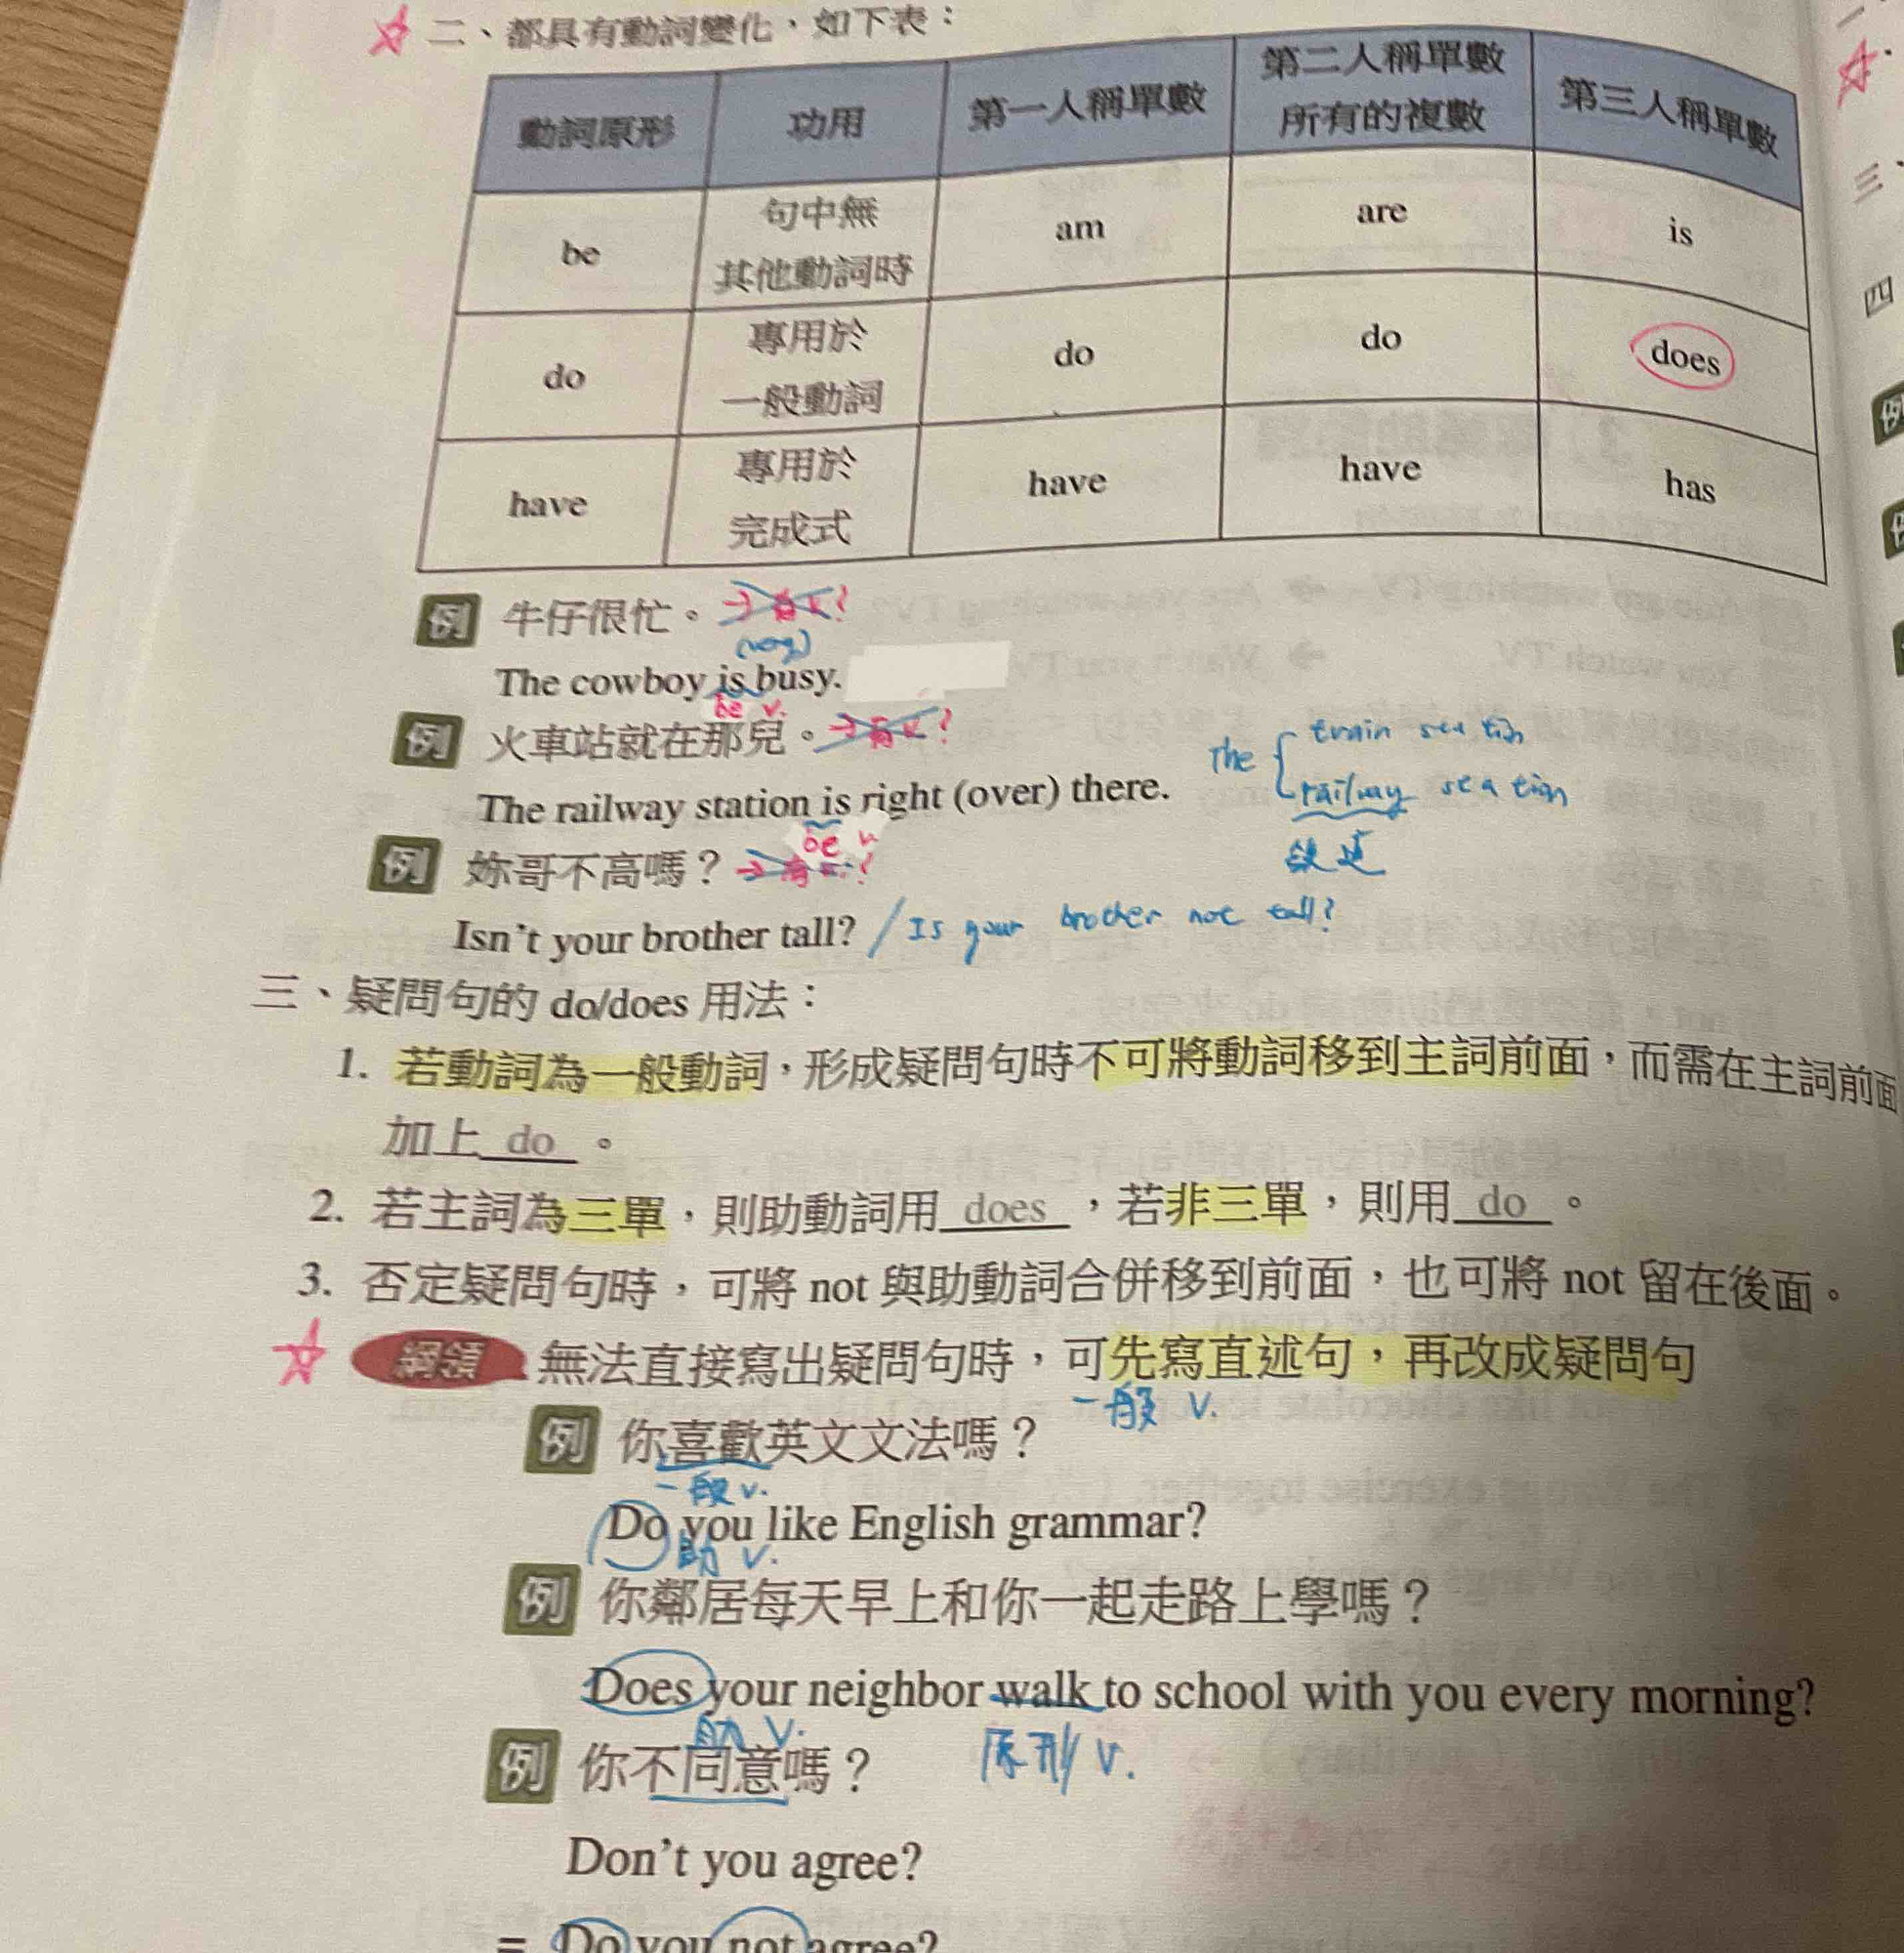 二、都具有動詞變化，如下表：
動詞原形 功用 第一人稱單數 第二人稱單數 所有的複數 第三人稱單數
be 句中無 其他動詞時 am are is
do 專用於 一般動詞 do do does
have 專用於 完成式 have have has
例 牛仔很忙。
The cowboy is busy.
be v.
例 火車站就在那兒。→有v.?
The railway station is right (over) there.
be v
The train seation
railway seation
鐵道
例 妳哥不高嗎？
Isn't your brother tall? / Is your brother not tall?
三、疑問句的 do/does 用法：
1. 若動詞為一般動詞，形成疑問句時不可將動詞移到主詞前面，而需在主詞前面
加上 do 。
2. 若主詞為三單，則助動詞用 does ，若非三單，則用 do 。
3. 否定疑問句時，可將 not 與助動詞合併移到前面，也可將 not 留在後面。
綱領 無法直接寫出疑問句時，可先寫直述句，再改成疑問句
一般 v.
例 你喜歡英文文法嗎？
一般 v.
Do you like English grammar?
助 v.
例 你鄰居每天早上和你一起走路上學嗎？
Does your neighbor walk to school with you every morning?
助 v. 原形 v.
例 你不同意嗎？
Don't you agree?
= Do you not agree?
三、
四
例